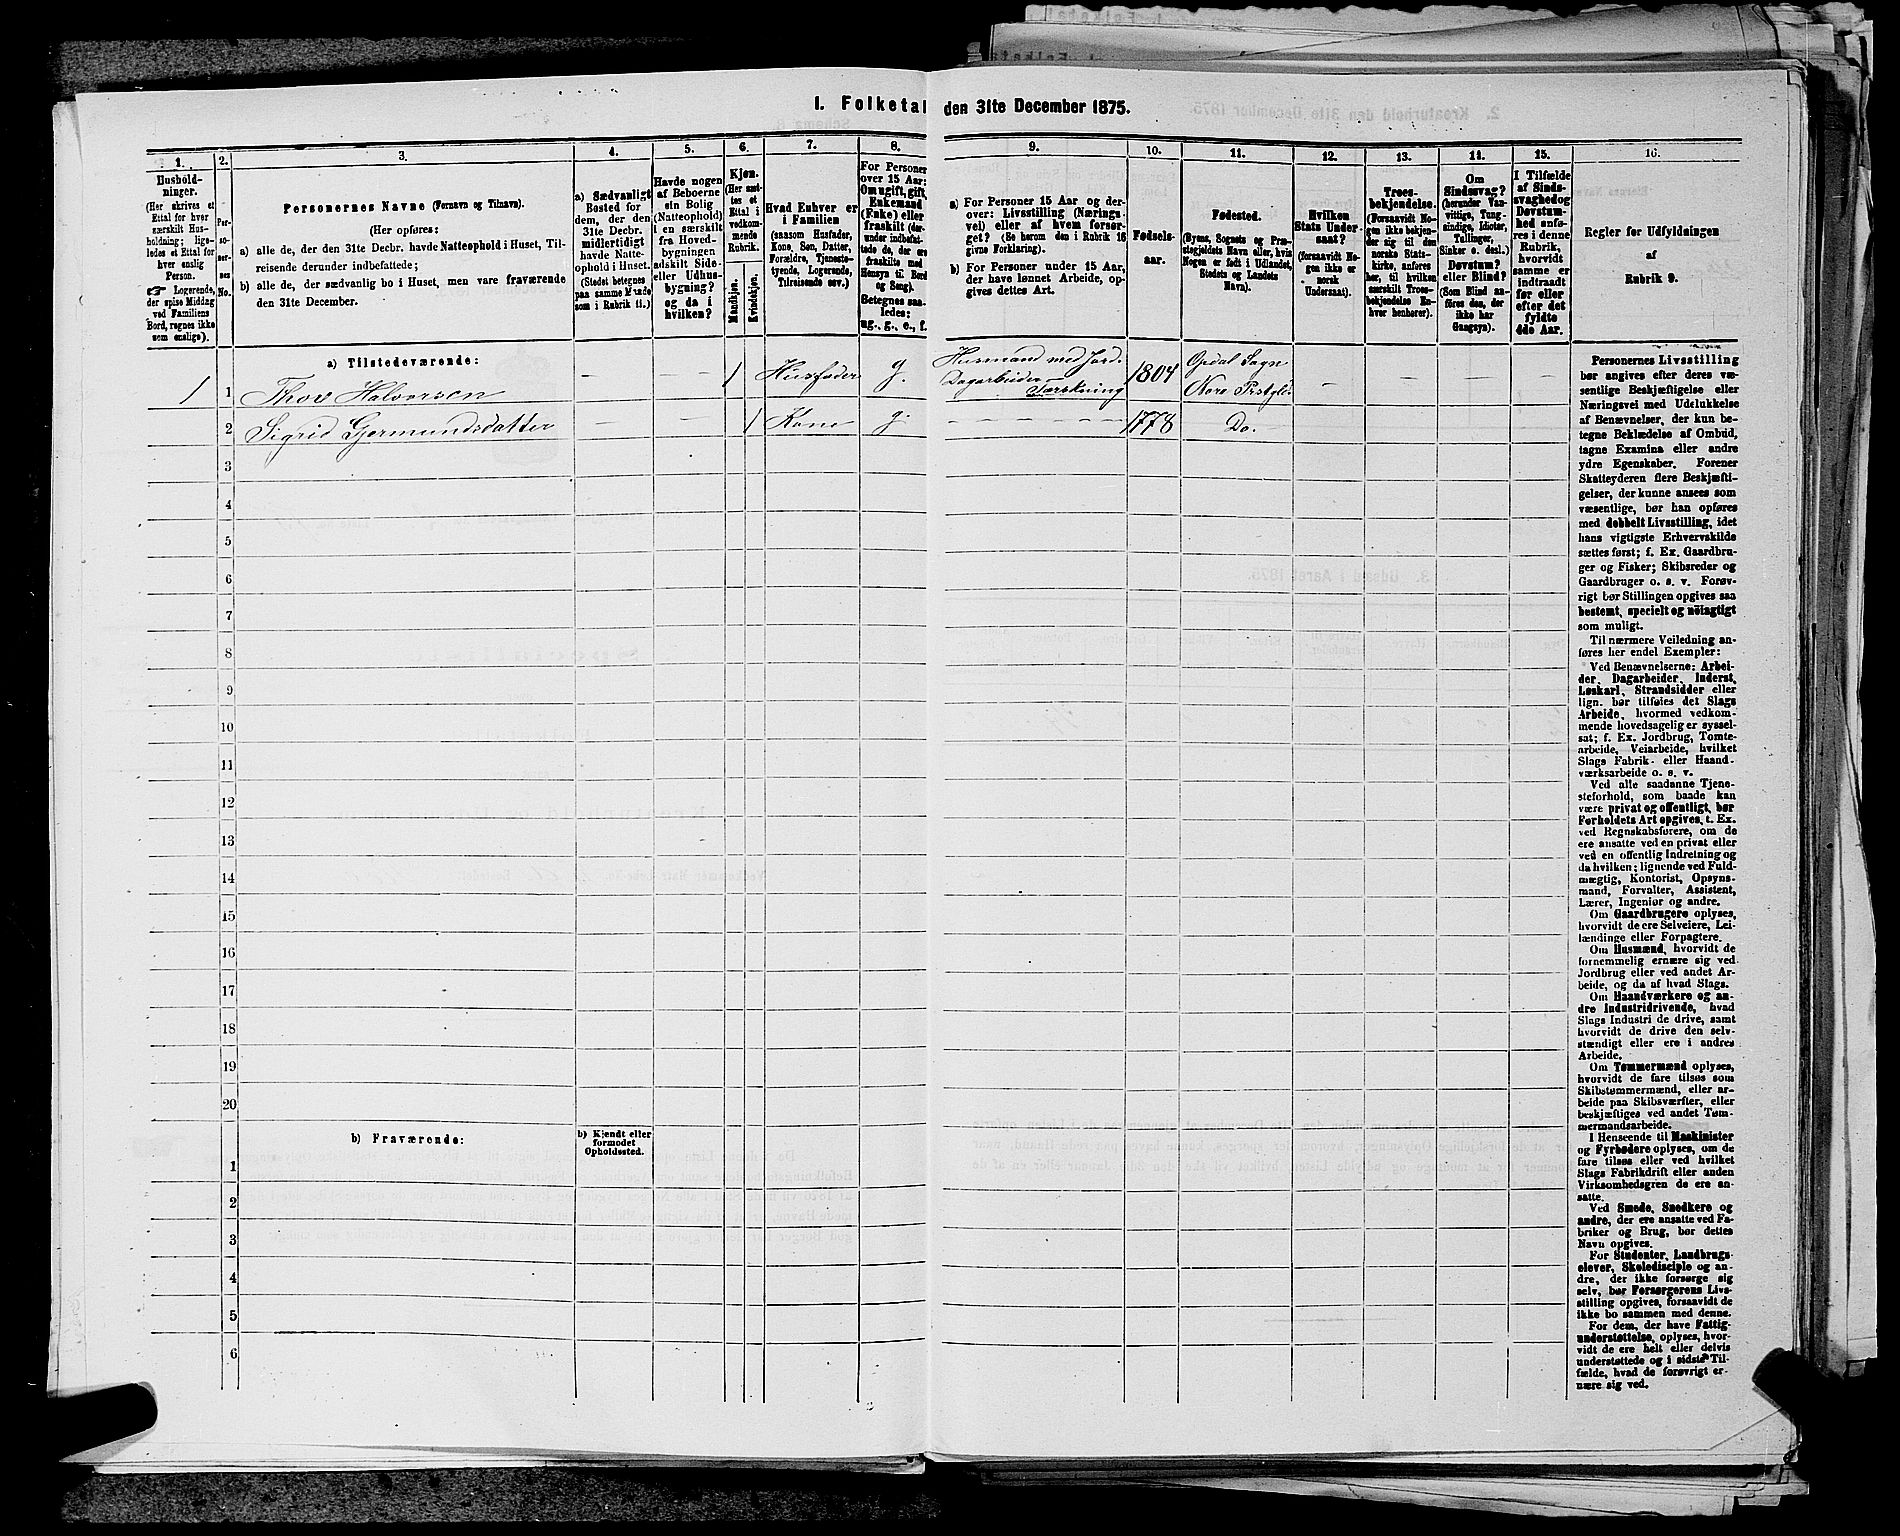 I. Folketal den 31te December 1875.
1.
2.
3.
4.
5.
6.
7.
8.
9.
10.
11.
12.
13.
14.
15.
16.
Hushold-
ninger.
(Her skrives et
Ettal for hver
særskilt Hus-
holdning; lige-
ledes et Ettal for
hver enslig
Person.
☞ Logerende,
der spise Middag
ved Familiens
Bord, regnes ikke
som enslige).
Per-
so-
ner-
nes
No.
Personernes Navne (Fornavn og Tilnavn).
(Her opføres:
a) alle de, der den 31te Decbr. havde Natteophold i Huset, Til-
reisende derunder indbefattede;
b) alle de, der sædvanlig bo i Huset, men vare fraværende
den 31te December.
a) Sædvanligt
Bosted for
dem, der den
31te Decbr.
midlertidigt
havde Natte-
ophold i Huset.
(Stedet betegnes
paa samme Maade
som i Rubrik 11.)
Havde nogen
af Beboerne
sin Bolig
(Natteophold)
i en særskilt
fra Hoved-
bygningen
adskilt Side-
eller Udhus-
bygning?
og da i
hvilken?
Kjøn.
(Her sæt-
tes et
Ettal i
vedkom-
mende
Rubrik.
Mandkjøn.
Kvindekjøn.
Hvad Enhver er
i Familien
(saasom Husfader,
Kone, Søn, Datter,
Forældre, Tjeneste-
tyende, Logerende,
Tilreisende osv.)
For Personer
over 15 Aar:
Om ugift, gift,
Enkemand
(Enke) eller
fraskilt (der-
under indbefat-
tede de, der ere
fraskilte med
Hensyn til Bord
og Seng).
Betegnes saa-
ledes:
ug., g., e., f.
a) For Personer 15 Aar og der-
over: Livsstilling (Nærings-
vei) eller af hvem forsør-
get? (Se herom den i Rubrik 16
givne Forklaring).
b) For Personer under 15 Aar,
der have lønnet Arbeide, op-
gives dettes Art.
Fødsels-
aar.
Fødested.
(Byens, Sognets og Præ-
stegjeldets Navn eller, hvis
Nogen er født i Udlandet,
Stedets og Landets
Navn).
Hvilken
Stats Under-
saat?
(forsaavidt No-
gen ikke er
norsk
Undersaat).
Troes-
bekjendelse.
(Forsaavidt No-
gen ikke bekjen-
der sig til den
norske Stats-
kirke, anføres
her, til hvilken
særskilt Troes-
bekjendelse En-
hver henhører).
Om
Sindssvag?
(herunder Van-
vittige, Tung-
sindige, Idioter,
Tullinger,
Sinker o. desl.)
Døvstum?
eller Blind?
(Som Blind an-
føres den, der
ikke har
Gangsyn).
I Tilfælde
af Sinds-
svaghed og
Døvstum-
hed anfø-
res i denne
Rubrik,
hvorvidt
samme er
indtraadt
før eller
efter det
fyldte
4de Aar.
Regler for Udfyldningen
af
Rubrik 9.
a) Tilstedeværende:
1 1 Thov Halvorsen — — 1 Husfader g. Husmand med Jord. Dagarbeider Tærskning 1804 Opdal Sogn Nore Prstgld — — — —
2 Sigrid Germundsdatter — — 1 Kone g. — — — — — — 1778 Do. — — — —
3
4
5
6
7
8
9
10
11
12
13
14
15
16
17
18
19
20
b) Fraværende:
b) Kjendt eller
formodet
Opholdssted.
1
2
3
4
5
6
Personernes Livsstilling
bør angives efter deres væ-
sentlige Beskjæftigelse eller
Næringsvei med Udelukkelse
af Benævnelser, der kun be-
tegne Beklædelse af Ombud,
tagne Examina eller andre
ydre Egenskaber. Forener
Skatteyderen flere Beskjæfti-
gelser, der kunne ansees som
væsentlige, bør han opføres
med dobbelt Livsstilling, idet
hans vigtigste Erhvervskilde
sættes først; f. Ex. Gaardbru-
ger og Fisker; Skibsreder og
Gaardbruger o. s. v. Forøv-
rigt bør Stillingen opgives saa
bestemt, specielt og nöiagtigt
som muligt.
Til nærmere Veiledning an-
føres her endel Exempler:
Ved Benævnelserne: Arbei-
der, Dagarbeider, Inderst,
Løskarl, Strandsidder eller
lign. bør tilføies det Slags
Arbeide, hvormed vedkom-
mende hovedsagelig er syssel-
sat; f. Ex. Jordbrug, Tomte-
arbeide, Veiarbeide, hvilket
Slags Fabrik- eller Haand-
værksarbeide o. s. v.
Ved alle saadanne Tjene-
steforhold, som baade kan
være privat og offentligt, bør
Forholdets Art opgives, t. Ex.
ved Regnskabsførere, om de
ere ansatte ved en privat eller
ved en offentlig Indretning og
da hvilken; lignende ved Fuld-
mægtig, Kontorist, Opsyns-
mand, Forvalter, Assistent,
Lærer, Ingeniør og andre.
Om Gaardbrugere oplyses,
hvorvidt de ere Selveiere, Lei-
lændinge eller Forpagtere.
Om Husmænd, hvorvidt de
fornemmelig ernære sig ved
Jordbrug eller ved andet Ar-
beide, og da af hvad Slags.
Om Haandværkere og an-
dre Industridrivende, hvad
Slags Industri de drive, samt
hvorvidt de drive den selv-
stændigt eller ere i andres
Arbeide.
Om Tømmermænd oplyses,
hvorvidt de fare tilsøs som
Skibstømmermænd, eller ar-
beide paa Skibsværfter, eller
beskjæftiges ved andet Tøm-
mermandsarbeide.
I Henseende til Maskinister
og Fyrbødere oplyses, om de
fare tilsøs eller ved hvilket
Slags Fabrikdrift eller anden
Virksomhedsgren de ere an-
satte.
Ved Smede, Snedkere og
andre, der ere ansatte ved Fa-
briker og Brug, bør dettes
Navn opgives.
For Studenter, Landbrugs-
elever, Skoledisciple og an-
dre, der ikke forsørge sig
selv, bør Forsørgerens Livs-
stilling opgives, forsaavidt de
ikke bo sammen med denne.
For dem, der have Fattig-
understøttelse, oplyses, hvor-
vidt de ere helt eller delvis
understøttede og i sidste Til-
fælde, hvad de forøvrigt er-
nære sig ved.